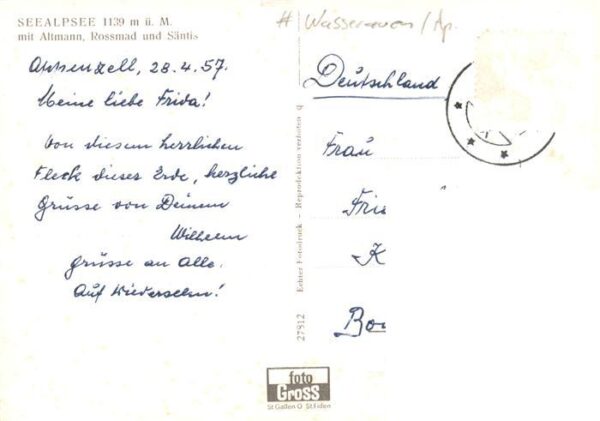 SEEALPSEE 1139 m ü. M.
mit Altmann, Rossmad und Säntis
Appenzell, 28.4.57.
Meine liebe Frida!
Von diesem herrlichen
Fleck dieser Erde, herzliche
Grüsse von Deinem
Wilhelm
Grüsse an Alle.
Auf Wiedersehn!
Echter Fotodruck - Reproduktion verboten q
27812
# Wasserauen/Ap.
Deutschland
Frau
Fri
K
Bon
foto
Gross
St Gallen O St Fiden